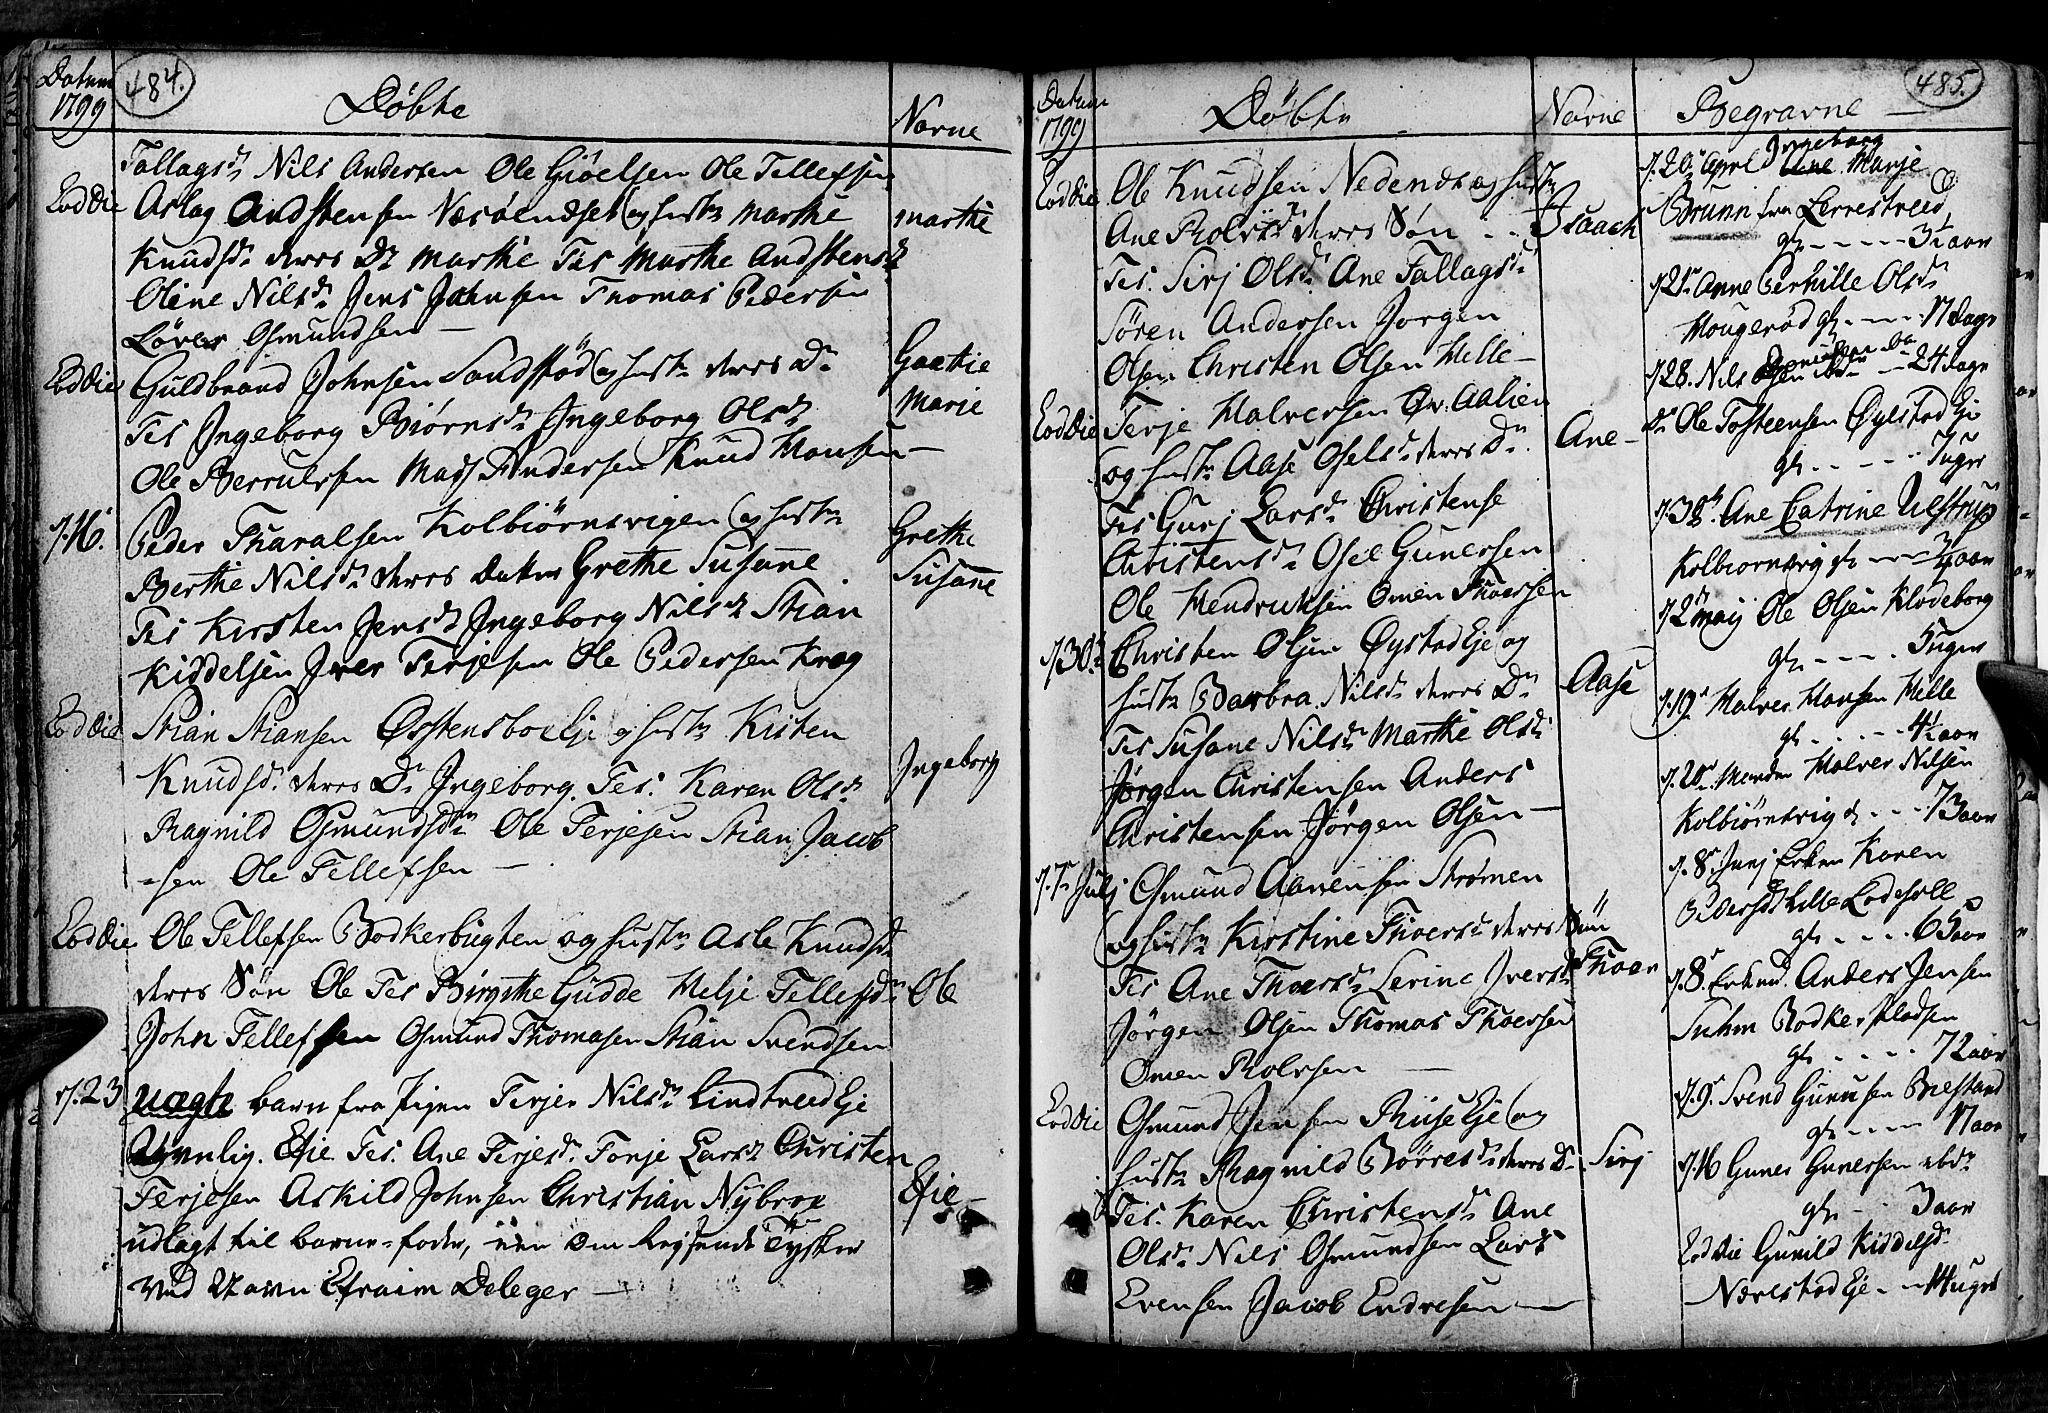 Datum
1799
484.
Døbte
Navne
Tallagsdr Nils Andersen Ole Giøelsen Ole Tellefsen
Eod Die Aslag Andstensen Næsøendset og hustr Marthe
Marthe
Knudsdr deres Dr Marthe Tes Marthe Andstensdr
Oline Nilsdr Jens Johnsen Thomas Pedersen
Osmundsen
Eod Die Guldbrand Johnsen Sandstød og hustr deres Dr
Marie
Tes Ingeborg Biørnsdr Ingeborg Olsdr
Ole Berrulfsen Mads Andersen Knud Hansen
d. 16. Peder Tharalsen Kolbiørnsvigen og hustr
Grethe
Berthe Nilsdr deres Datter Grethe Susanne
Susanne
Tes Kirsten Jensdr Ingeborg Nilsdr Stian
Kiddelsen Iver Terjesen Ole Pedersen Krog
Eod Die Stian Stiansen Østensboe Eje og hustr Kisten
Ingeborg
Knudsd. deres Dr Ingeborg. Tes. Karen Olsdr
Ragnild Osmundsdr Ole Terjesen Stian Jacob
-sen Ole Tellefsen
Eod Die Ole Tellefsen Bodkerbugten og hustr Asle Knudsd
deres Søn Ole Tes Birgithe Gudde Helje Tellefsdr
Ole
John Tellefsen Osmund Thomasen Stian Svendsen
d. 23 uægte barn fra Pigen Terjer Nilsdr Lindtved Eje
Efie Tes. Ane Terjesdr Tonje Larsdr Christen
Efie
Terjesen Askild Johnsen Christian Nybroe
udlagt til barne-fader, den Tysker
ved Navn Efraim Deleger
Datum
1799
485.
Døbte
Navne
Begravne
Eod Die Ole Knudsen Nedenes og hustr
Isaach
Ane Rolvsdr deres Søn
Tes. Sirj Olsdr Ane Tallagsdr
Søren Andersen Jorgen
Olsen Christen Olsen Helle
Eod Die Terje Halversen Øv. Aalien
Ane
og hustr Aase Oselsdr deres Dr
Tes Gurj Larsdr Christense
Christensdr Osel Gunersen
Ole Hendriksen Omen Thoersen
d. 30te Christen Olsen Øystad Eje og
Aase
hustr Barbra Nilsdr deres Dr
Tes Susane Nilsdr Marthe Olsdr
Jørgen Christensen Anders
Christensen Jørgen Olsen
d. 7de Julj Osmund Aanensen Strømen
og hustr Kirstine Thoersdr deres Søn
Thoer
Tes Ane Thoersdr Serine Iversdr
Jørgen Olsen Thomas Thoersen
Omen Rolvsen
Eod Die Osmund Jensen Ruse Eje og
hustr Ragnild Børresdr deres Dr
Sirj
Tes. Karen Christensdr Ane
Olsdr Nils Osmundsen Lars
Evensen Jacob Endresen
d. 20de Aprl Ingeborg Marje
Brunn fra Lerrestved
gl - - - - 3½ aar
d. 21de Anne Perhille Olsdr
Hougerød gl. - - - 17 Dage
d. 28. Nils - - 24 dage
do Ole Tosteensen Øylstad Ej
gl - - - - 7 Uger
Ane Catrine Ulstrup
Kolbiornsvig gl - - - ¾ aar
d. 2den Maij Ole Olsen Klodeborg
gl - - - - 5 uger
d. 19de Halver Hansen Helle
gl - - - - 4½ aar
d. 20de Manden Halver Nilsen
Kolbiørnsvig gl - - 73 aar
d. 8de Junj Enken Karen
Pedersdr Lille Lodesoll
gl - - - - 65 aar
d. 8. Anders Jensen
Suhm Bodker Pladsen
gl - - - - 72 aar
d. 9. Svend Gunusen Bielstand
gl - - - - 17 aar
d. 16 Guner Gunersen ibdr
gl - - 3 aar
Eod Die Gunild Kiddelsdr
Nærestad Eje - - 14 uger